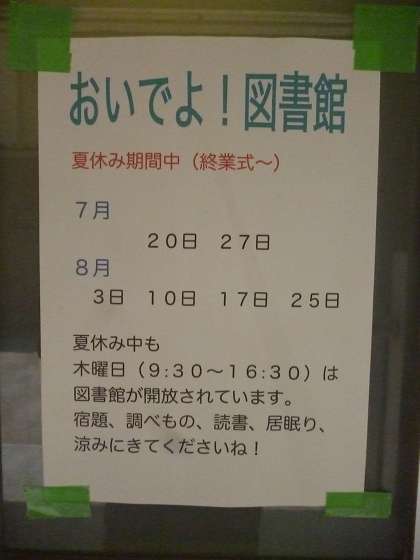 おいでよ！図書館
夏休み期間中（終業式～）
７月
２０日　２７日
８月
３日　１０日　１７日　２５日
夏休み中も
木曜日（９：３０～１６：３０）は
図書館が開放されています。
宿題、調べもの、読書、居眠り、
涼みにきてくださいね！